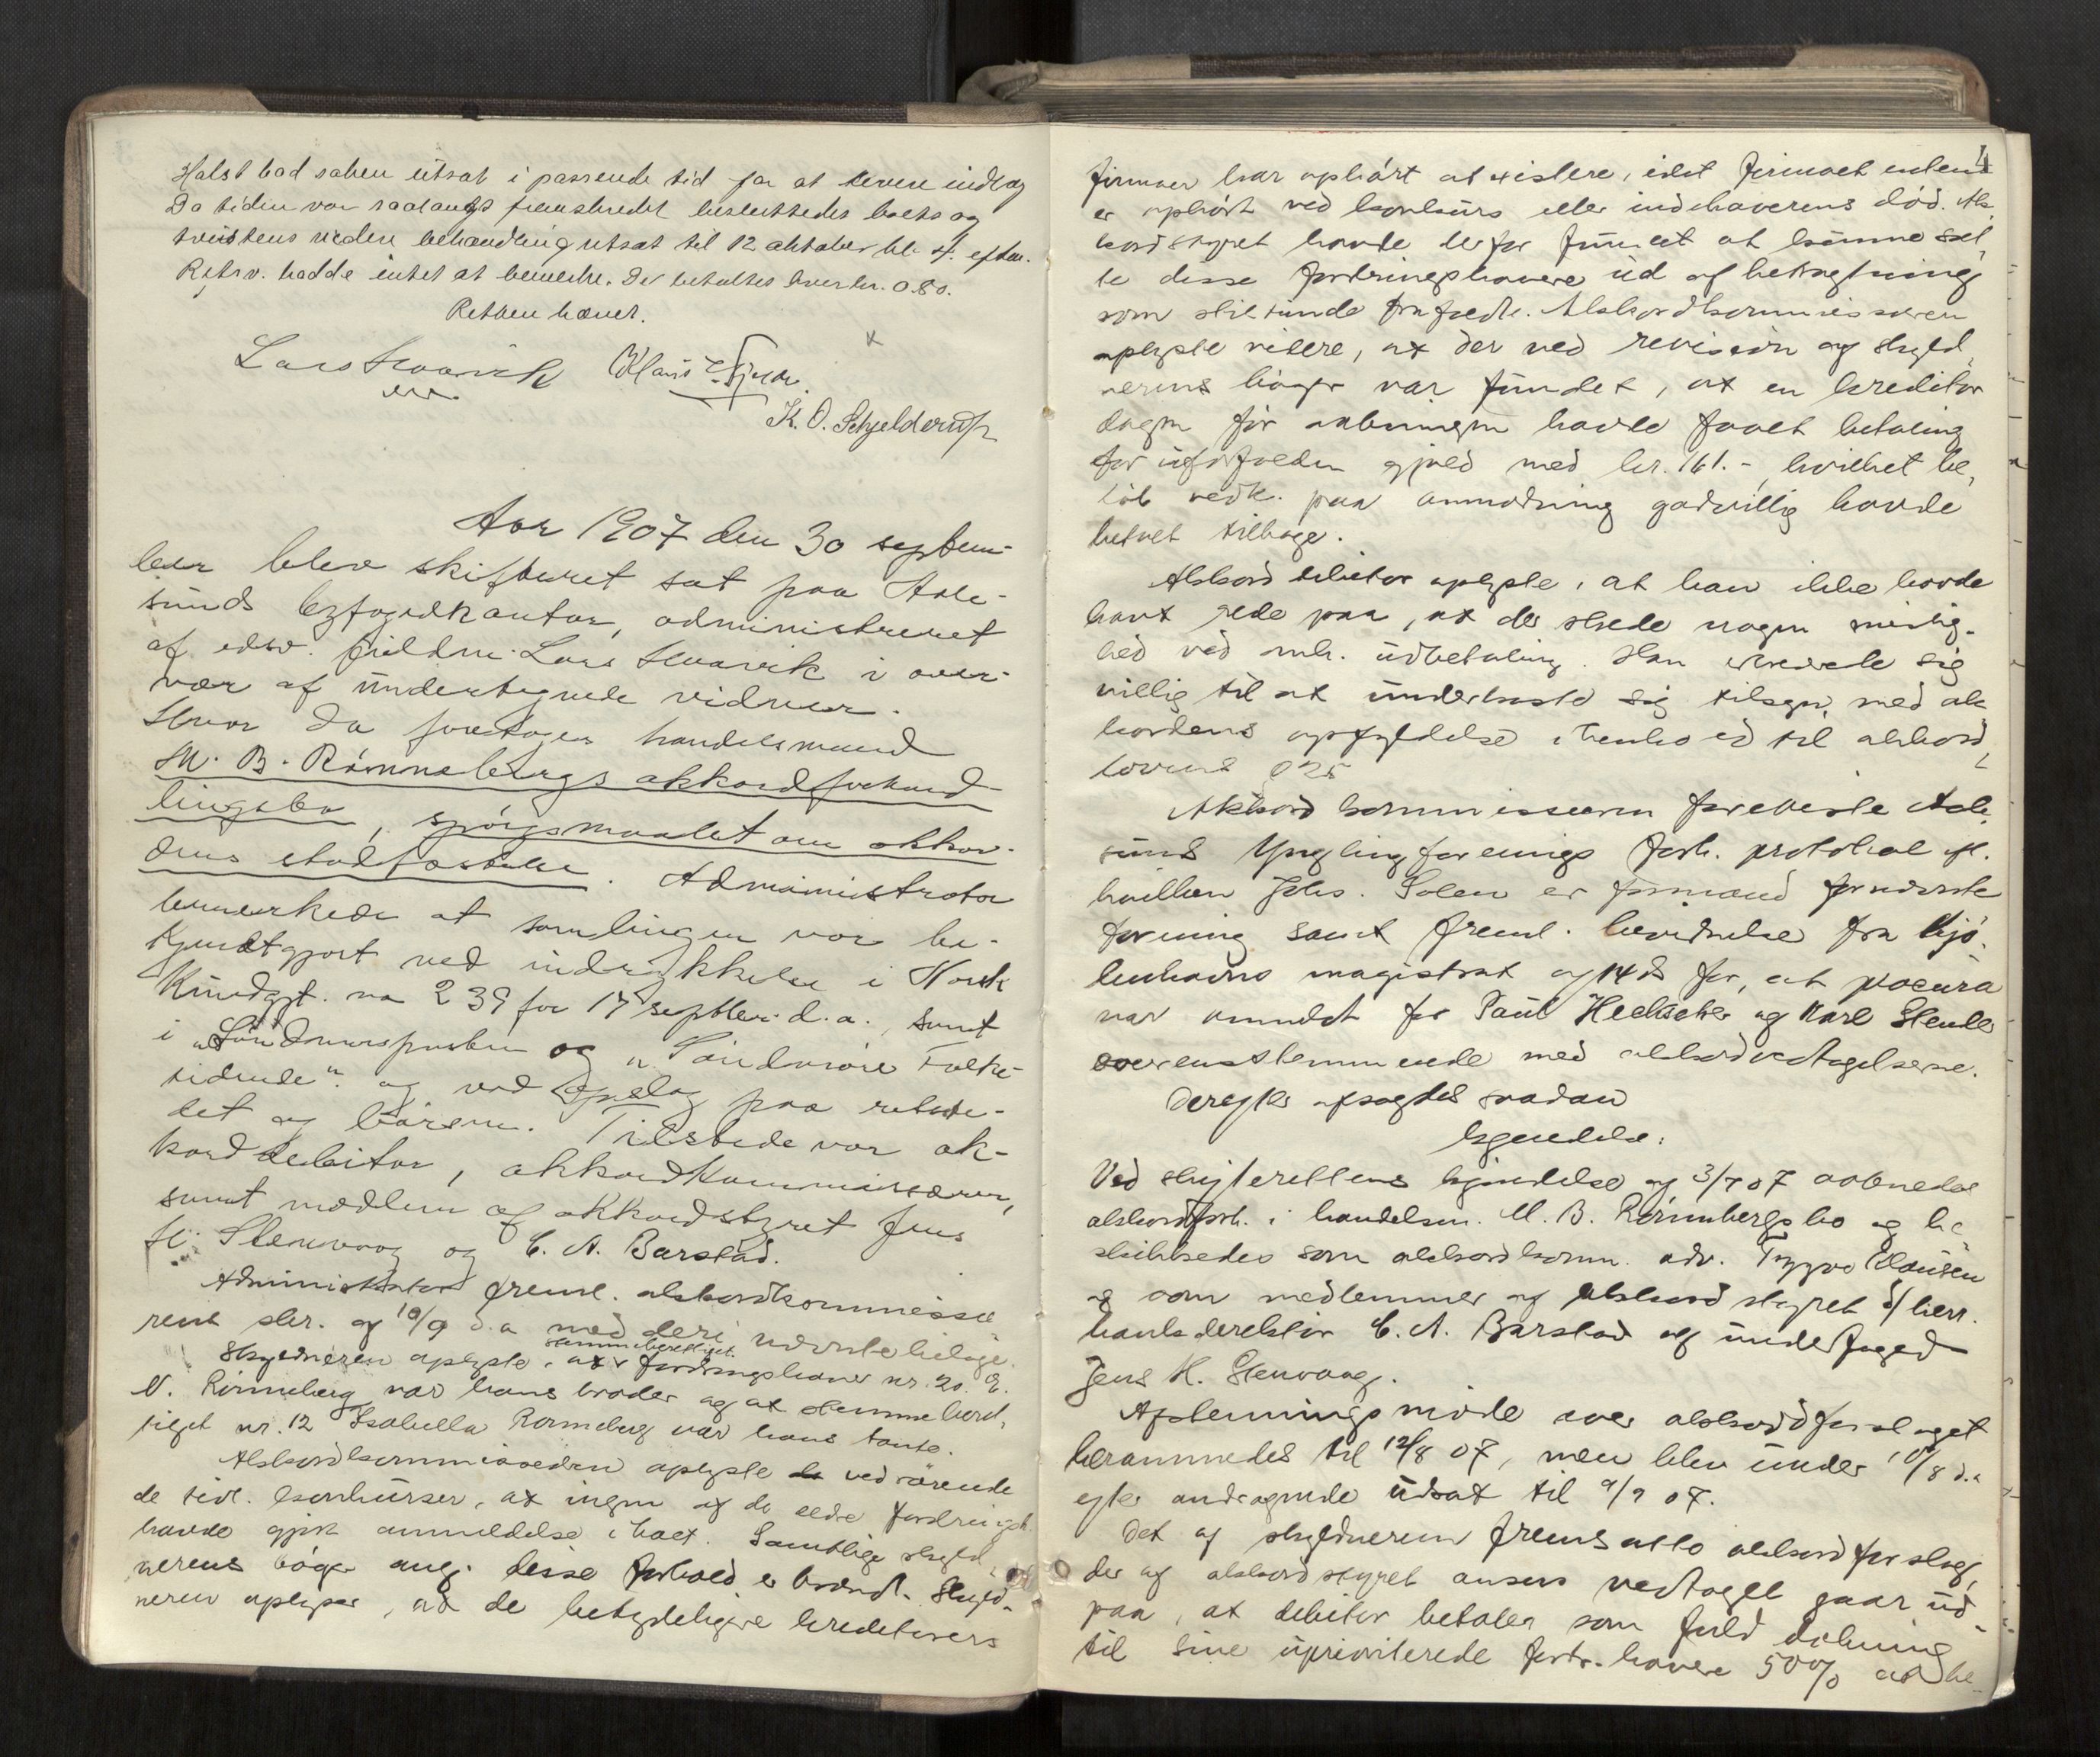 Holst bad saken utsat i passende tid for at levere indlæg
Da tiden var saalangt fremskredet besluttedes boets og
tvistens videre behandling utsat til 12 oktober kl. 4 eftm.
Retsv. hadde intet at bemerke. De betaltes hver kr. 0.80.
Retten hævet.
Lars Hovarik Klaus
K. O. Schjelderup
Aar 1907 den 30 septem-
ber blev skifteret sat paa Aale-
sunds byfogedkontor, administreret
af edsv. fuldm. Lars Hovarik i over-
vær af undertegnede vidner.
Hvor da foretoges handelsmand
M. B. Rönnebergs akkordforhand-
lingsbo, spörgsmaalet om akkor-
dens stadfæstelse. Administrator
bemerkede at samlingen var be-
kjendtgjort ved indrykkelse i Norsk
Kundgjt. no 239 for 17 septber. d. a., samt
i „Söndmörsposten og „Söndmöre Folke-
tidende". og ved opslag paa retste-
det og börsen. Tilstede var ak-
korddebitor, akkordkommissæren,
samt medlem af akkordstyret Jens
H. Stenvaag og C. A. Barstad.
Administrator freml. akkordkommissæ
rens skr. af 10/9 d.a med deri nævnte bilage.
Skyldneren oplyste, at stemmeberettiget fordringshaver nr. 20. E.
N. Rönneberg var hans broder og at stemmeberet,
tiget nr. 12 Isabella Rönneberg var hans tante.
Akkordkommissæren oplyste vedrörende
de tidl. konkurser, at ingen af de ældre fordringsh.
havde gjort anmeldelse i boet. Samtlige skyld,
nerens böger ang. disse forhold er brændt. Skyld-
neren oplyser, at de betydeligere kreditorers
4
firmaer har ophört at existere, idet firmaet enten
er ophört ved konkurs eller indehaverens död. Ak,
kordstyret havde derfor fundet at kunne sæt,
te disse fordringshavere ud af betragtning
som stillende fra fordr. Akkordkommissæren
oplyste videre, at der ved revision af skyld,
nerens böger var fundet, at en kreditor
dagen för aabningen havde faaet betaling
for uforfalden gjæld med kr. 161.-, hvilket be,
löb vedk. paa anmodning godvillig havde
betalt tilbage.
Akkorddebitor oplyste, at han ikke havde
havt rede paa, at der skede nogen mislig-
hed ved omh. udbetaling. Han erklærede sig
villig til at underkaste sig tilsyn med ak
kordens opfyldelse i henhold til akkord,
lovens § 25
Akkordkommissæren foreviste Aale,
sunds Ynglingforenings forh. protokol ifl.
hvilken Johs. Solem er formand for nævnte
forening samt freml. bevidnelse fra Kjö,
benhavns magistrat af 14 ds for, at procura
var anmeldt for Paul Heckscher og Karl Stender
overensstemmende med akkordvedtagelserne.
Derefter afsagdes saadan
kjendelse:
Ved skifterettens kjendelse af 3/7 07 aabnedes
akkordforh. i handelsm. M. B. Rönnebergs bo og be,
skikkedes som akkordkomm. adv. Trygve Klausen
og som medlemmer af akkordstyret d'herr.
bankdirektör C. A. Barstad og underfoged
Jens H. Stenvaag.
Afstemningsmöde over akkordforslaget
berammedes til 12/8 07, men blev under 10/8 d.a
efter andragende udsat til 9/9 07.
Det af skyldneren fremsatte akkordforslag,
der af akkordstyret ansees vedtaget gaar ud
paa, at debitor betaler som fuld dekning
til sine uprioriterede fordr. havere 50% at be-